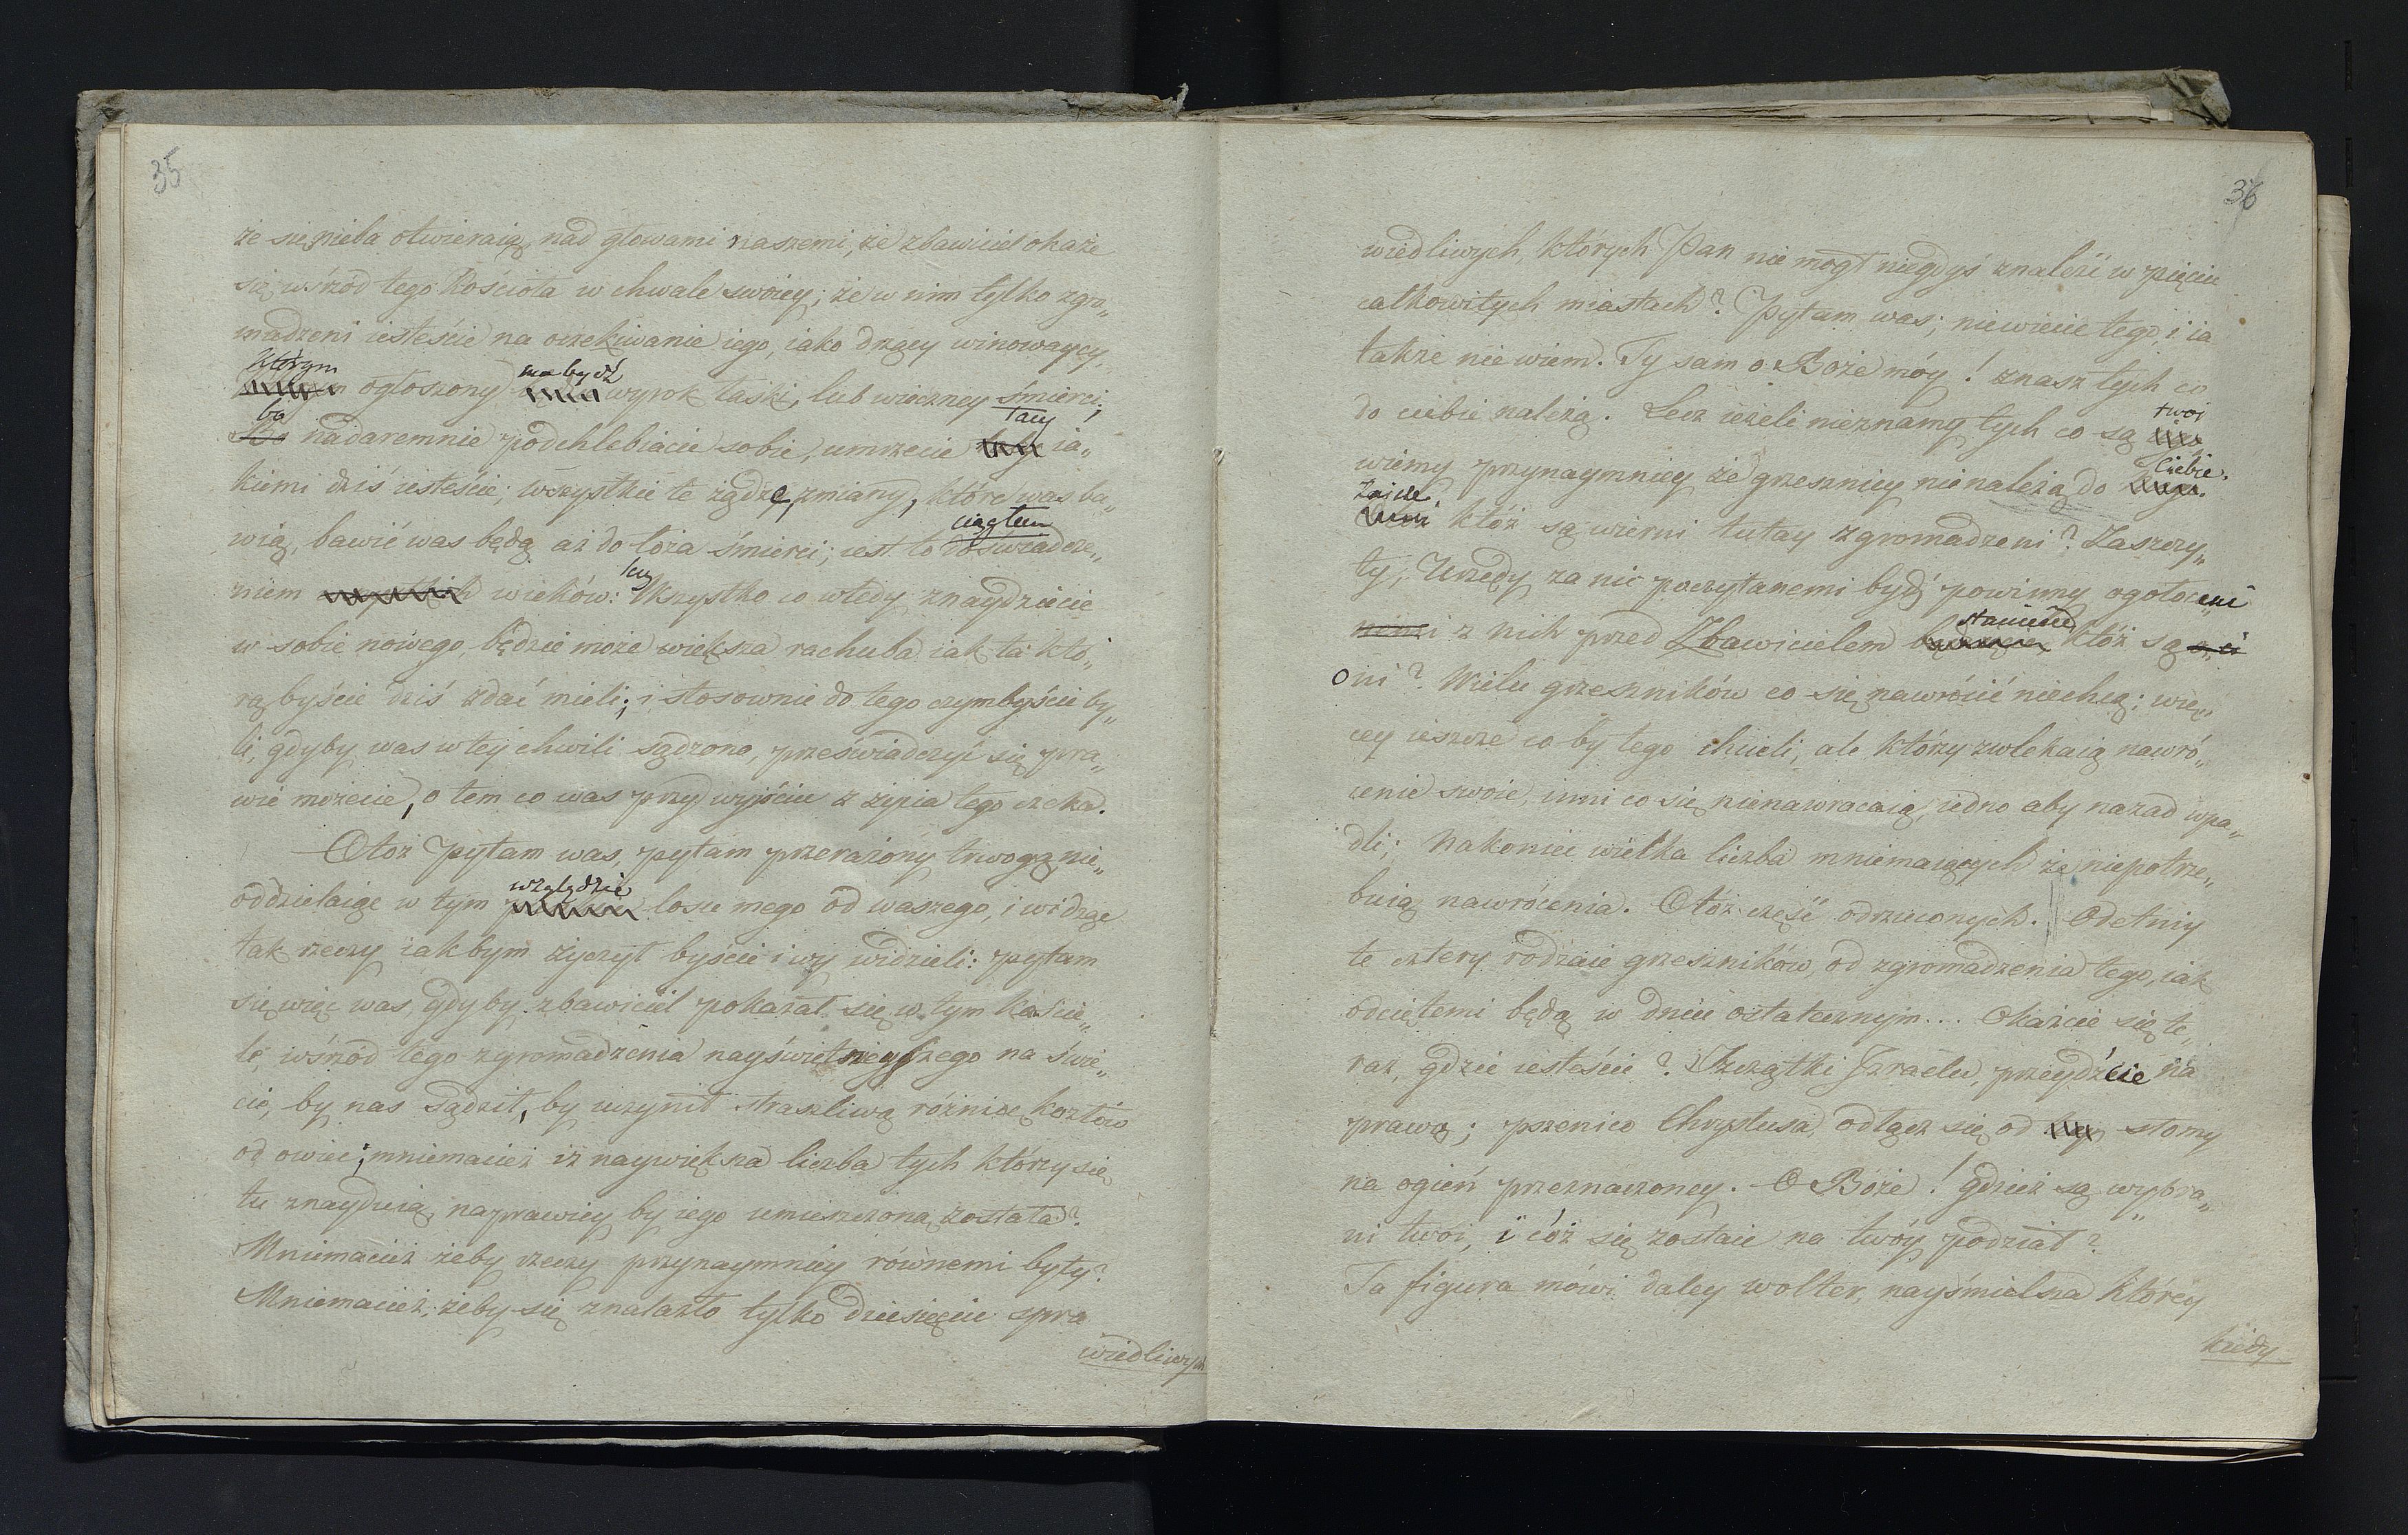 35
że się nieba otwieraią nad głowami naszemi, że zbawiciel okaże
się wśrzód tego Kościoła w chwale swoiey; że w nim tylko zgro„
madzeni iesteście na oczekiwanie iego, iako drżący winowaycy,
którym ma bydź
ogłoszony wyrok łaski, lub wieczney śmierci;
bo tacy
nadaremnie podchlebiacie sobie, umrzecie ia„
kiemi dziś iesteście; wszystkie te żądze, zmiany, które was ba„
ciągłem
wią, bawić was będą aż do łoża śmierci; iest to doświadcze„
niem wieków: Wszystko co wtedy znaydziecie
w sobie nowego, będzie może większa rachuba iak ta któ„
rą byście dziś zdać mieli; i stosownie do tego czym byście by„
li, gdyby was w tey chwili sądzono, przeświadczyć się pra„
wie możecie, o tem co was przy wyjściu z życia tego czeka.
Otoż pytam was, pytam przerażony trwogą, nie„
względzie
oddzielaiąc w tym losu mego od waszego, i widząc
tak rzeczy iakbym życzył byście i wy widzieli: pytam
się więc was, gdyby zbawiciel pokazał się w tym koście„
le, wśrzód tego zgromadzenia nayświetnieyszego na świe„
cie, by nas sądził, by uczynił straszliwą różnicę kozłów
od owiec; mniemacież iż naywiększa liczba tych którzy się
tu znayduią, na prawicy by iego umieszczoną została?
Mniemacież żeby rzeczy przynaymniey równemi były?
Mniemacież, żeby się znalazło tylko dziesięciu spra
wiedliwych
36
wiedliwych, których Pan nie mogł niegdyś znaleść w pięciu
całkowitych miastach? Pytam was; niewiecie tego, i ia
także nie wiem. Ty sam o Boże móy! znasz tych co
do ciebie należą. Lecz ieżeli nieznamy tych co są twoi
wiemy przynaymniey że grzesznicy nienależą do Ciebie.
któż są wierni tutay zgromadzeni? Zaszczy„
ty, Urzędy za nic poczytanemi bydź powinny, ogołoceni
z nich przed Zbawicielem staniecie któż są
oni? Wielu grzeszników co się nawrócić niechcą; wię„
cey ieszcze co by tego chcieli, ale którzy zwlekaią nawró„
cenie swoie, inni co się nienawracaią, iedno aby nazad wpa„
dli; Nakoniec wielka liczba mniemaiących że niepotrze„
buią nawrócenia. Otóż część odrzuconych. Odetniy
te cztery rodzaie grzeszników, od zgromadzenia tego, iak
odciętemi będą w dniu ostatecznym... Okażcie się te„
raz, gdzie iesteście? Szczątki Jzraelu, przeydźcie na
prawą; pszenico Chrystusa, odłącz się od słomy
na ogień przeznaczoney. O Boże! gdzież są wybra„
ni twoi, i cóż się zostaie na twóy podział?
Ta figura mówi daley wolter, nayśmielsza którey
kiedy